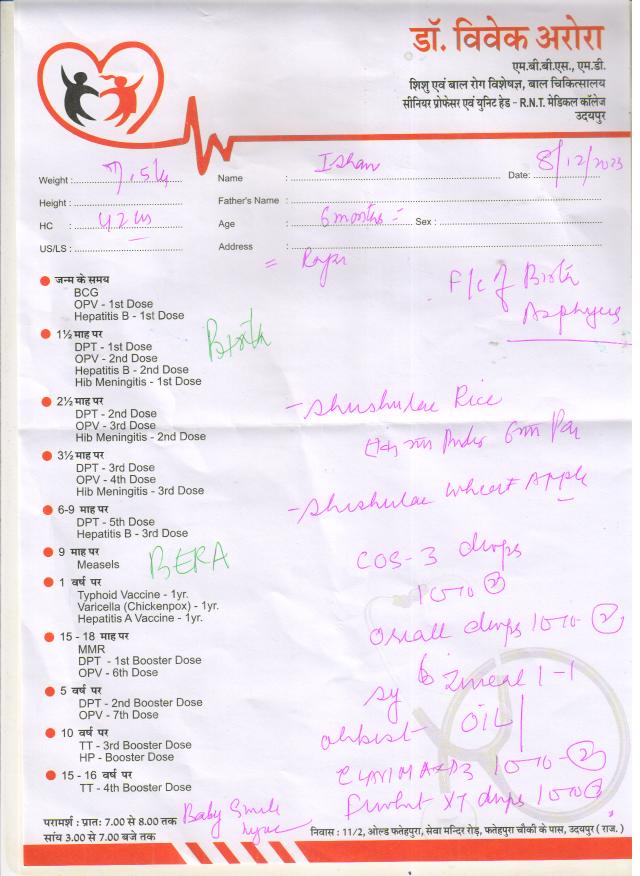 डॉ. विवेक अरोरा
एम.बी.बी.एस., एम.डी.
शिशु एवं बाल रोग विशेषज्ञ, बाल चिकित्सालय
सीनियर प्रोफेसर एवं युनिट हेड - R.N.T. मेडिकल कॉलेज
उदयपुर
Weight : 7.5 kg
Name : Ishan
Date: 8/12/2023
Height :
Father's Name :
HC : 42 cm
Age : 6 months
Sex :
US/LS :
Address :
F/c of Birth
Asphyxia
जन्म के समय
BCG
OPV - 1st Dose
Hepatitis B - 1st Dose
1½ माह पर
Birth
DPT - 1st Dose
OPV - 2nd Dose
Hepatitis B - 2nd Dose
Hib Meningitis - 1st Dose
2½ माह पर
DPT - 2nd Dose
OPV - 3rd Dose
Hib Meningitis - 2nd Dose
- Shushulac Rice
3½ माह पर
DPT - 3rd Dose
OPV - 4th Dose
Hib Meningitis - 3rd Dose
- Shishulac Wheat Apple
6-9 माह पर
DPT - 5th Dose
Hepatitis B - 3rd Dose
9 माह पर
Measels
BERA
COS-3 drops
1 वर्ष पर
Typhoid Vaccine - 1yr.
Varicella (Chickenpox) - 1yr.
Hepatitis A Vaccine - 1yr.
15 - 18 माह पर
MMR
DPT - 1st Booster Dose
OPV - 6th Dose
drops
5 वर्ष पर
DPT - 2nd Booster Dose
OPV - 7th Dose
Sy 1-1
OIL
10 वर्ष पर
TT - 3rd Booster Dose
HP - Booster Dose
15 - 16 वर्ष पर
TT - 4th Booster Dose
XT drops
Baby Smile
परामर्श : प्रातः 7.00 से 8.00 तक
सांय 3.00 से 7.00 बजे तक
निवास : 11/2, ओल्ड फतेहपुरा, सेवा मन्दिर रोड़, फतेहपुरा चौकी के पास, उदयपुर ( राज. )